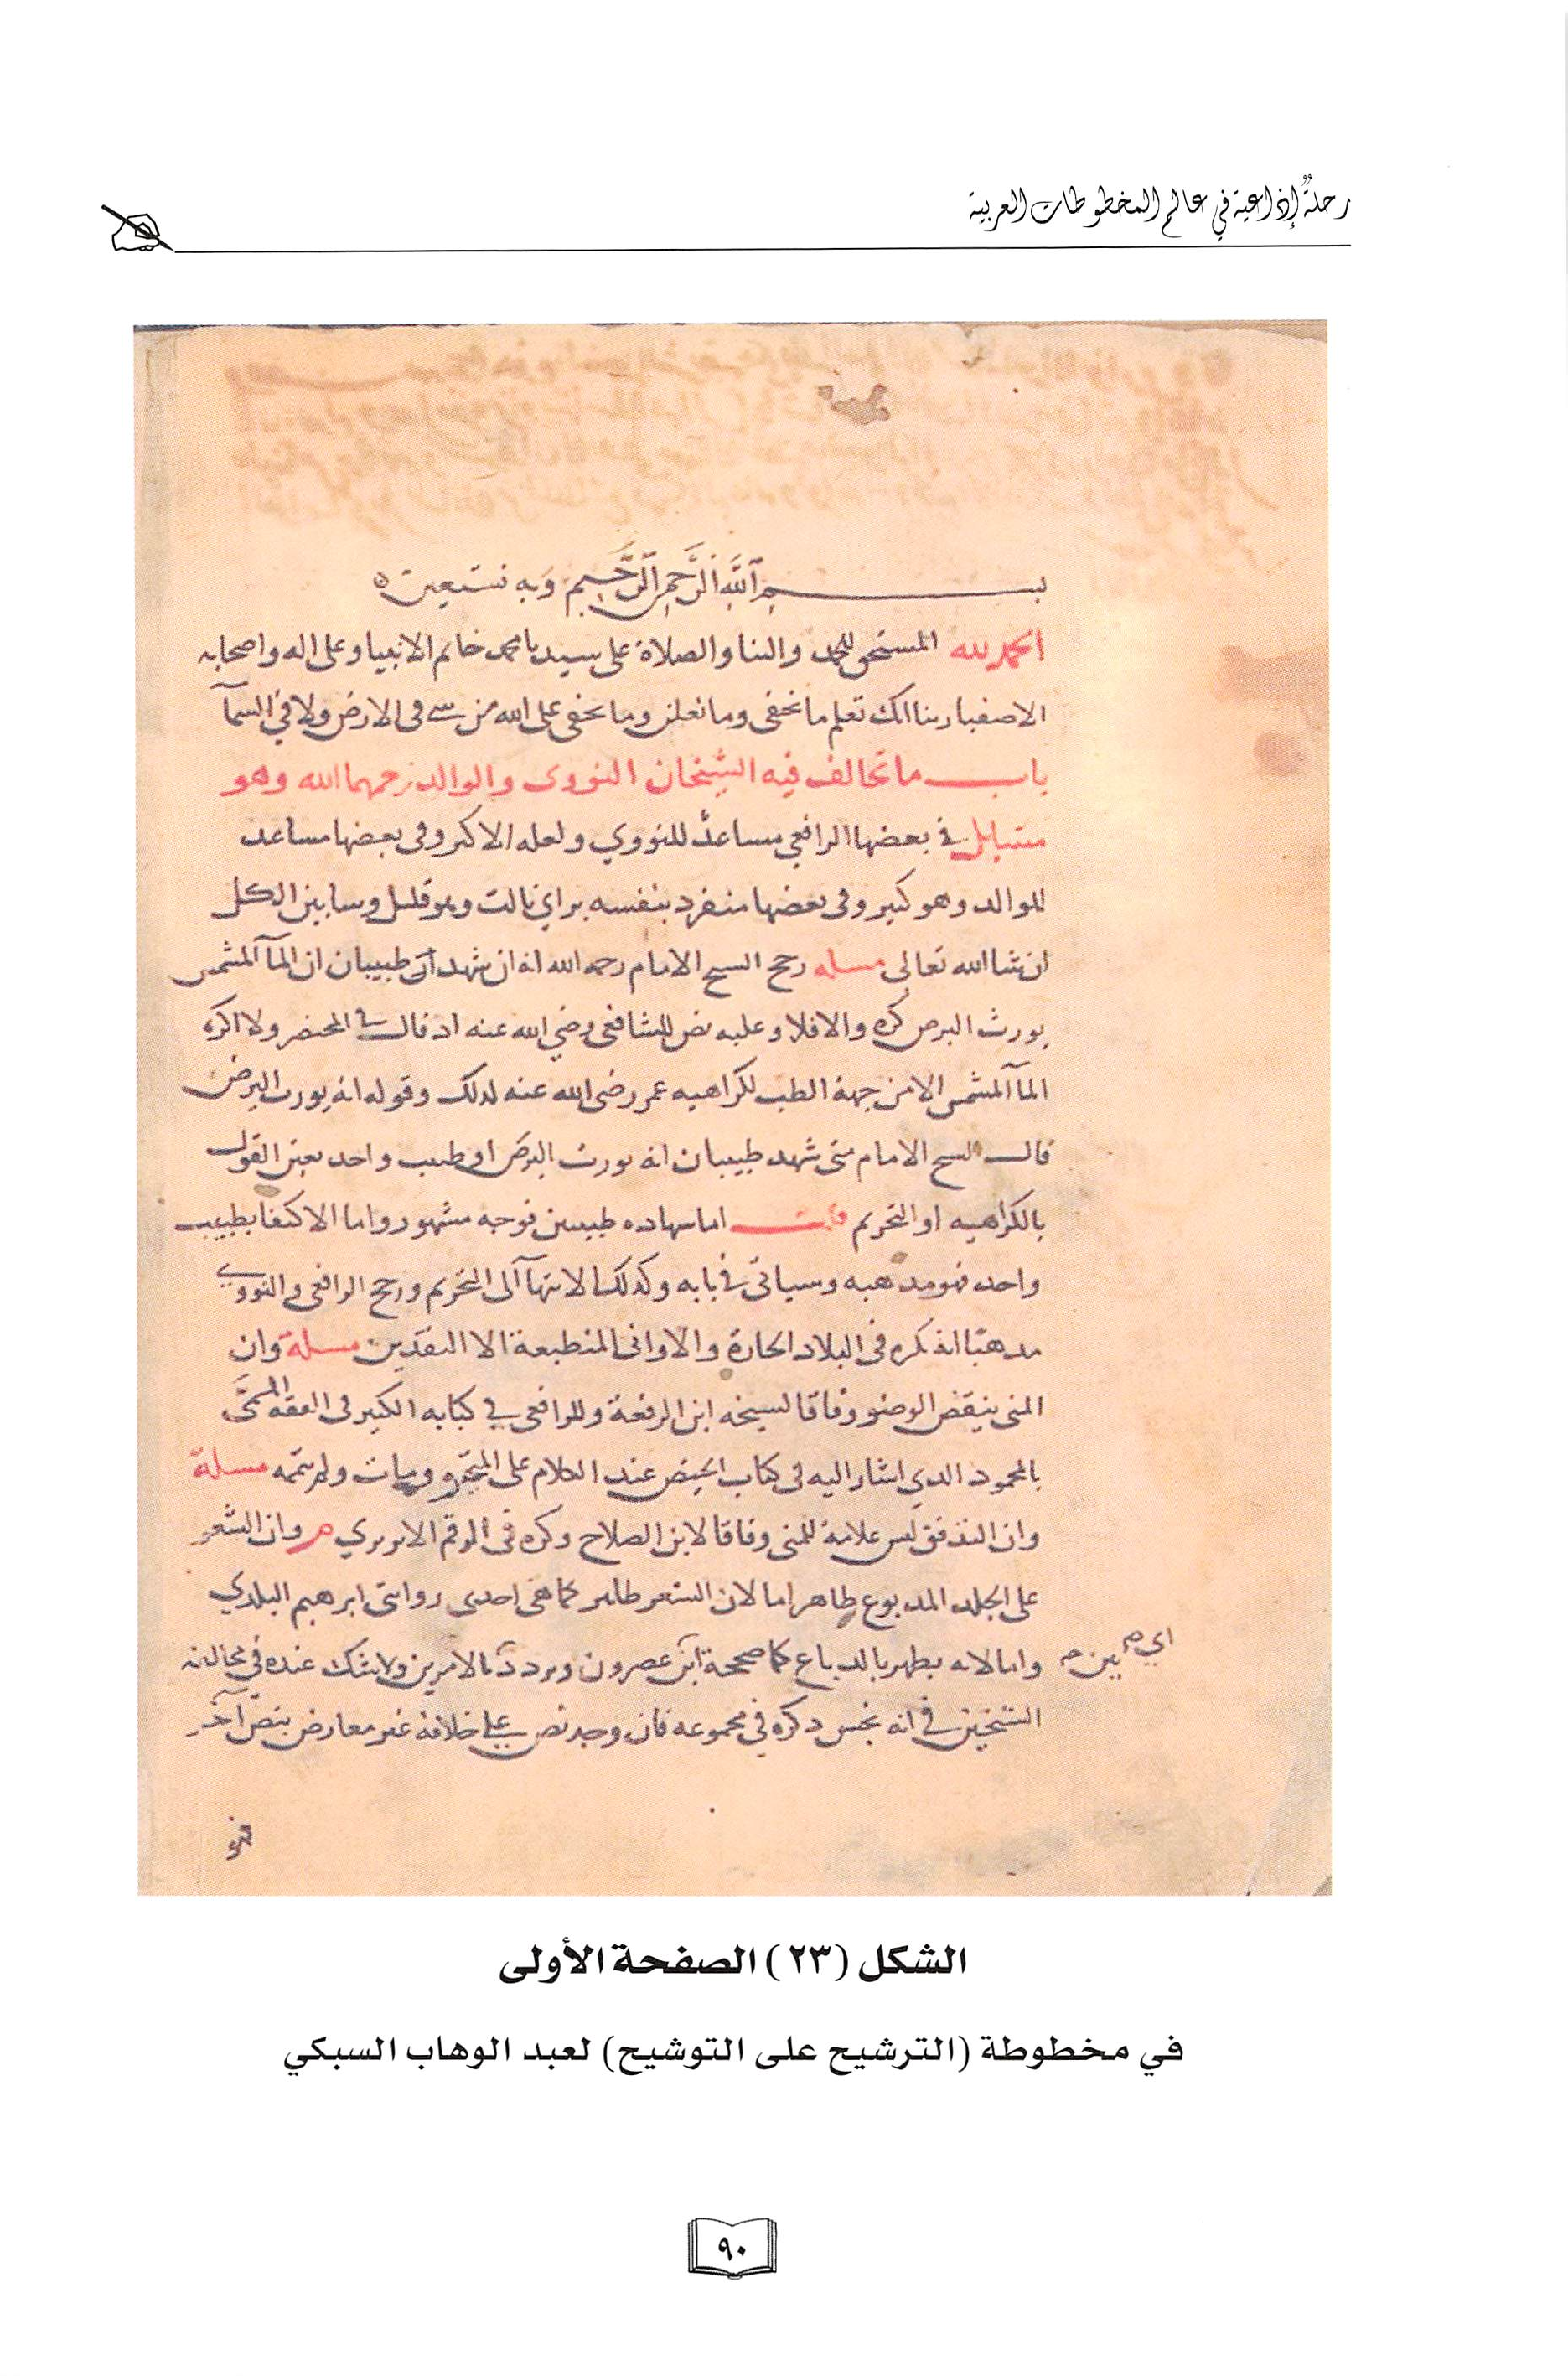 رحلةٌ إذاعية في عالم المخطوطات العربية
بسم الله الرحمن الرحيم وبه نستعين
الحمد لله المستحق للحمد والثنا والصلاة على سيدنا محمد خاتم الانبيا وعلى اله واصحابه
الاصفيا ربنا انك تعلم ما نخفى وما نعلن وما يخفى على الله من شى فى الارض ولا في السمآ
باب ما تخالف فيه الشيخان النووى والوالد رحمهما الله وهو
مسايل في بعضها الرافعي مساعدٌ للنووي ولعله الاكثر وفى بعضها مساعد
للوالد وهو كثير وفى بعضها منفرد بنفسه براي ثالث وهو قليل وسابين الكل
ان شا الله تعالى مسله رجح الشيخ الامام رحمه الله انه ان شهد طبيبان ان المآ المشمس
يورث البرص كره والا فلا وعليه نص الشافعى رضي الله عنه اذ قال في المختصر ولا اكره
المآ المشمس الا من جهة الطب لكراهيه عمر رضى الله عنه لذلك وقوله انه يورث البرص
قال الشيخ الامام متى شهد طبيبان انه يورث البرص او طبيب واحد تعين القول
بالكراهيه او التحريم قلت اما شهاده طبيبين فوجه مشهور واما الاكتفا بطبيب
واحد فهو مذهبه وسياتى في بابه وكذلك الانتهآ الى التحريم ورجح الرافعى والنووي
مذهبًا انه كره فى البلاد الحارة والاوانى المنطبعة الا النقدين مسلة وان
المنى ينقض الوضو وفاقا لشيخه ابن الرفعة وللرافعى في كتابه الكبير فى الفقه المسمَّى
بالمحمود الذي اشار اليه فى كتاب الحيض عند الكلام على المتحيره ومات ولم يتمه مسلة
وان التدفق ليس علامة للمنى وفاقا لابن الصلاح ذكره فى الرقم الابريزي وان الشعر
على الجلد المدبوع طاهر اما لان الشعر طاهر كما هى احدى روايتى ابرهيم البلدي
واما لانه يطهر بالدباغ كما صححه ابن عصرون وتردد الامرين ولا شك عنده في مخالفة
اي بين
الشيخين في انه نجس ذكره في مجموعه فان وجد نص على خلافه غير معارض بنص آخر
فهو
الشكل (٢٣) الصفحة الأولى
في مخطوطة (الترشيح على التوشيح) لعبد الوهاب السبكي
٩٠